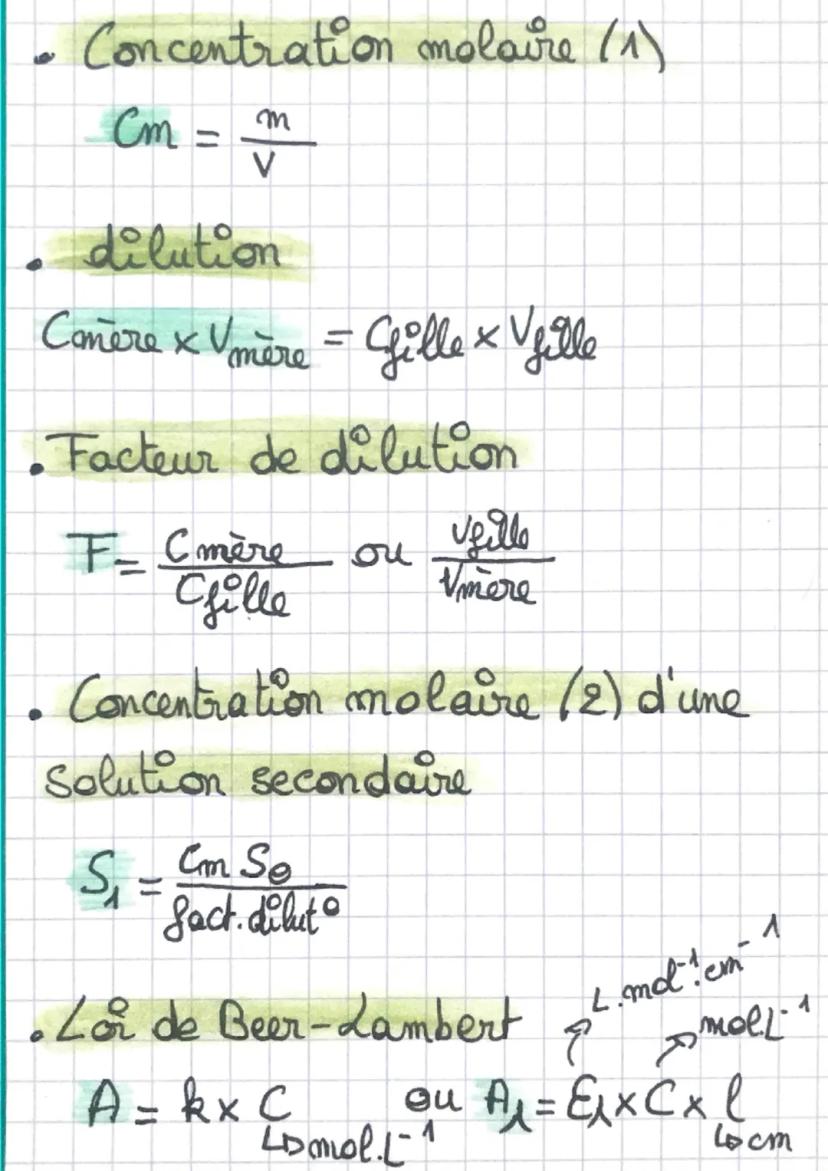 • Concentration molaire (1)
Cm = m/V
• dilution
Cmère x Vmère = Cfille x Vfille
• Facteur de dilution
F = Cmère/Cfille ou Vfille/Vmère
• Concentration molaire (2) d'une
solution secondaire
S₁ = Cm S₀/fact. dilut°
• Loi de Beer-Lambert
L.mol⁻¹.cm⁻¹
mol.L⁻¹
A = k x C ou Aλ = Ελ x C x l
↳ mol.L⁻¹ ↳ cm